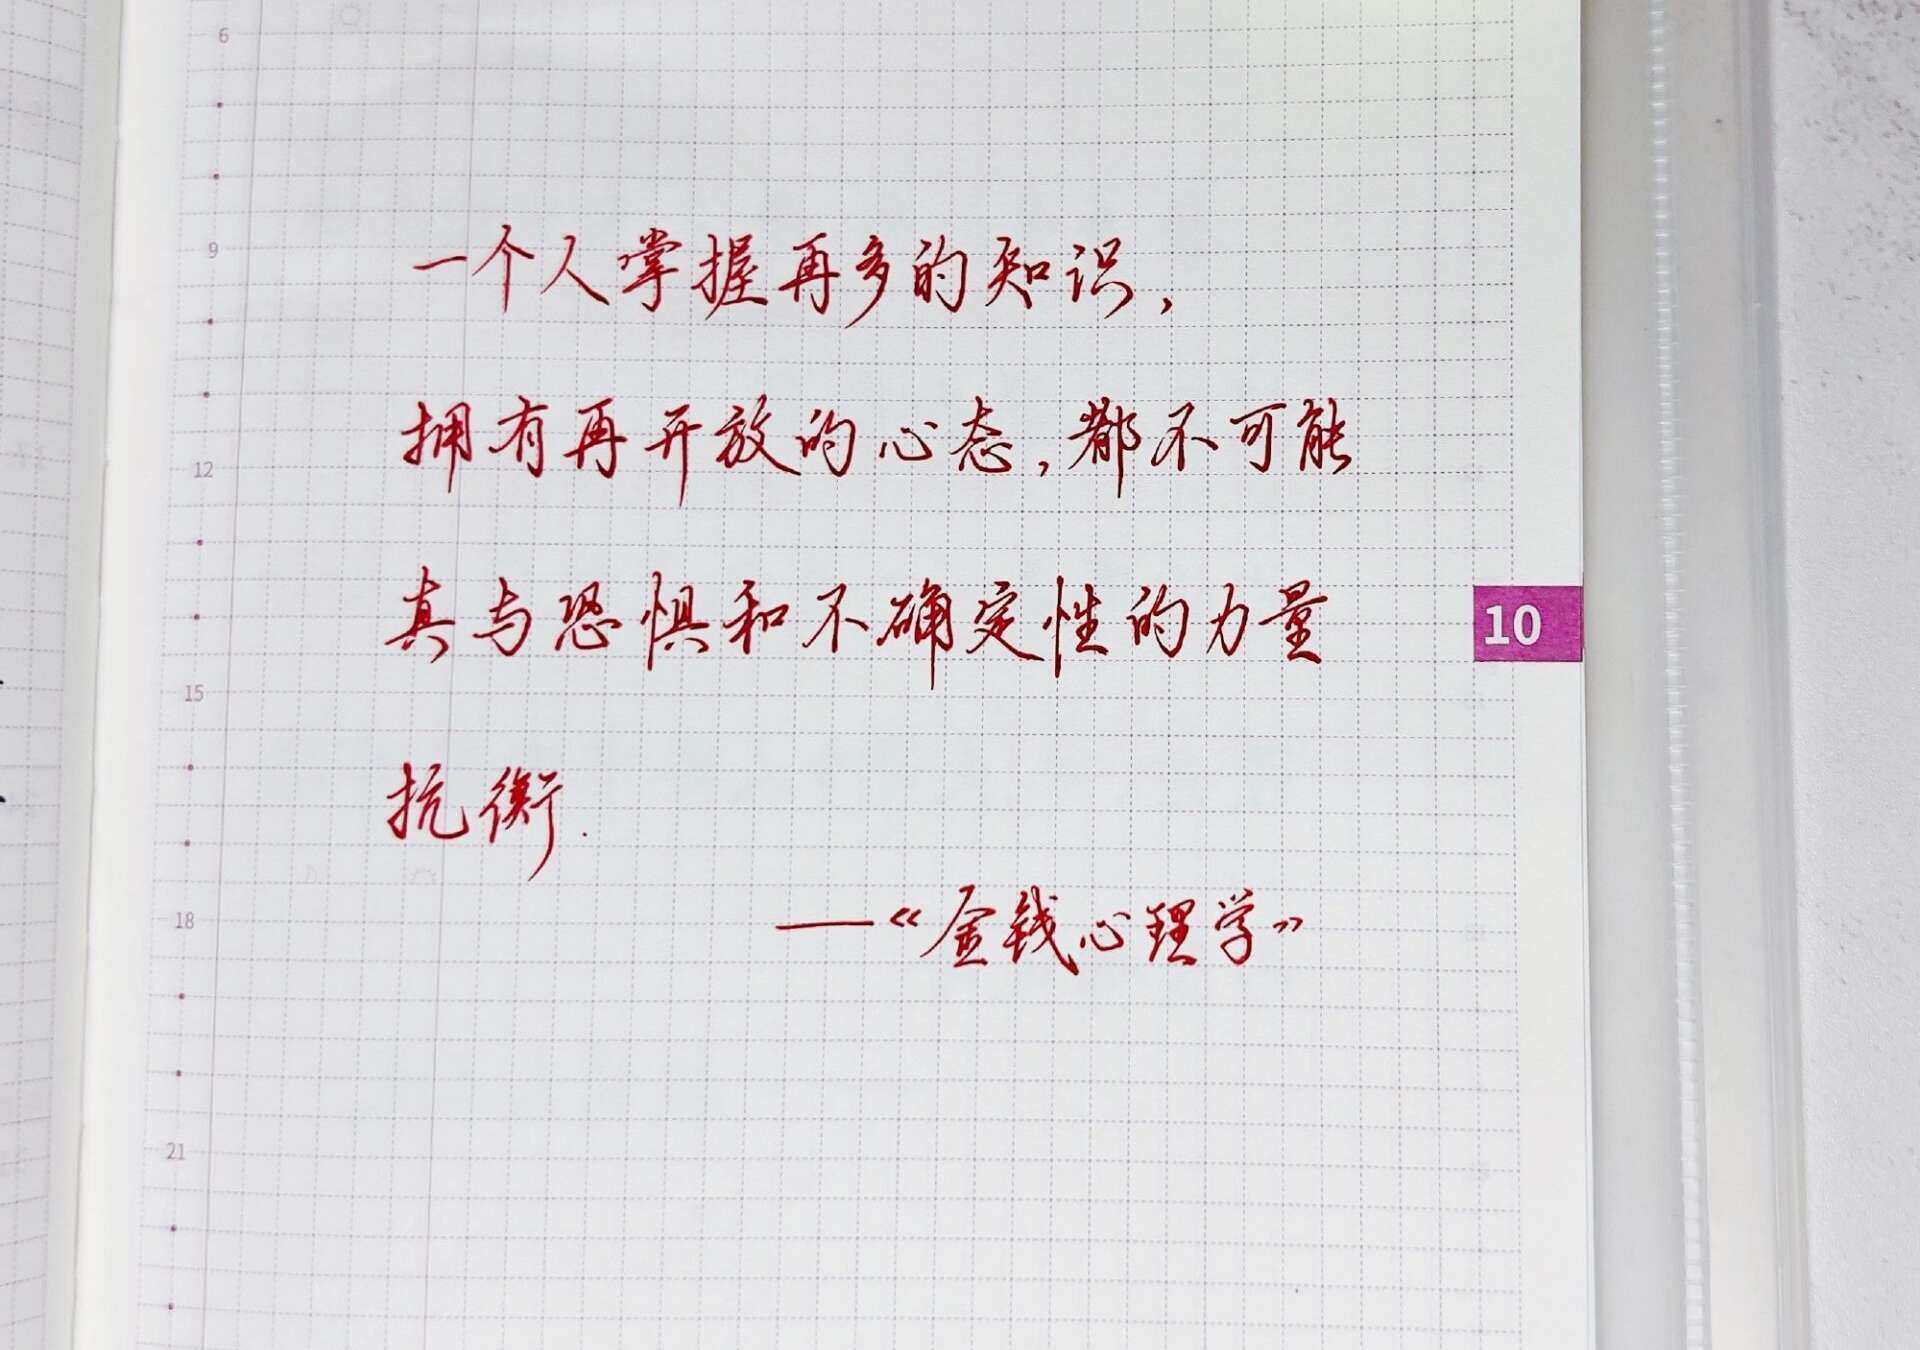 6
9
一个人掌握再多的知识,
拥有再开放的心态,都不可能
12
真与恐惧和不确定性的力量
10
15
抗衡.
18
——《金钱心理学》
21